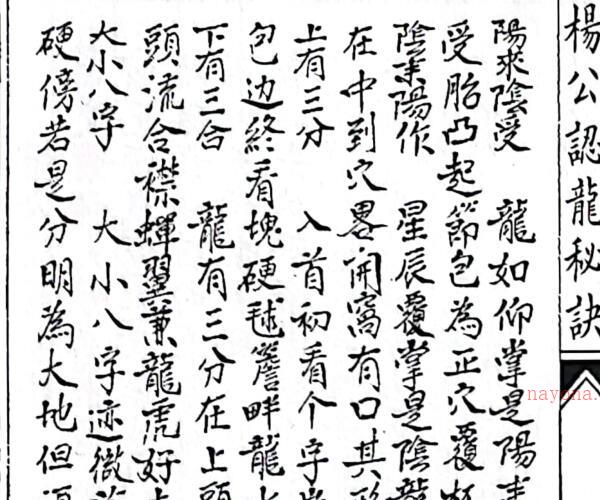 楊公認龍秘訣
陽來陰受　龍如仰掌是陽
受胎凸起節包為正穴覆
陰來陽作　星辰覆掌是陰龍
在中到穴畧開窩有口其
上有三分　入首初看个字
包边終看塊硬毬簷畔龍
下有三合　龍有三分在上頭
頭流合襟蟬翼兼龍虎好
大小八字　大小八字迹微
硬傍若是分明為大地但
nayona.